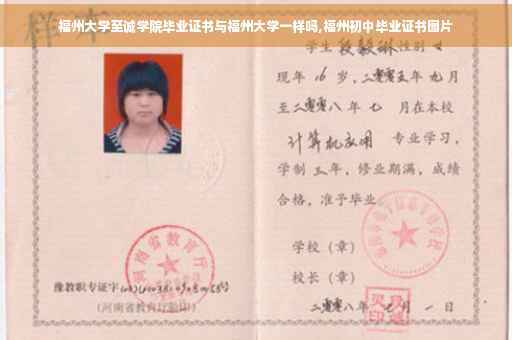 福州大学至诚学院毕业证书与福州大学一样吗,福州初中毕业证书图片
学生
性别 女
现年 16 岁,二零零五年 九月
至二零零八年 七 月在本校
计算机应用 专业学习,
学制 三 年,修业期满,成绩
合格,准予毕业
学校(章)
河南省教育厅
校长(章)
豫教职专证字
(河南省教育厅验印)
二零零八年 七 月 一 日